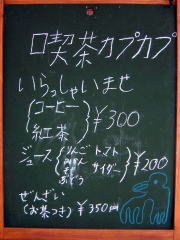 喫茶カプカプ
いらっしゃいませ
コーヒー
紅茶
¥300
ジュース
りんご トマト
みかん サイダー
ぶどう
¥200
ぜんざい
(お茶つき) ¥350円